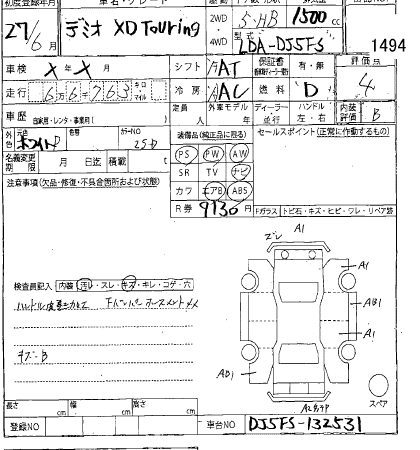 初度登録年月 車名・グレード
27/6月 デミオ XD Touring 2WD 4WD 5・HB 1500cc
型式 LDA-DJ5FS 1494
車検 × 年 × 月 シフト FAT 評価点 4
走行 66,763 キロ マイル 冷房 AAC 燃料 D ハンドル 左・右 内装評価 B
車歴 自家用・レンタ・事業用( ) 定員 人 外車モデル 年 ディーラー 並行
外色 元色 ホワイトP 色替 カラーNO 25D 装備品(純正品に限る) セールスポイント(正常に作動するもの)
名義変更期限 月 日迄 積載 t PS PW AW
注意事項(欠品・修復・不具合箇所および状態) SR TV ナビ
カワ エアB ABS
R券 9130 円 Fガラス トビ石・キズ・ヒビ・ワレ・リペア跡
検査員記入 内装 汚レ・スレ・キズ・キレ・コゲ・穴
A1
A1
AB1
A1
AB1
キズ-B
スペア
長さ cm 幅 cm 高さ cm
登録NO 車台NO DJ5FS-132531